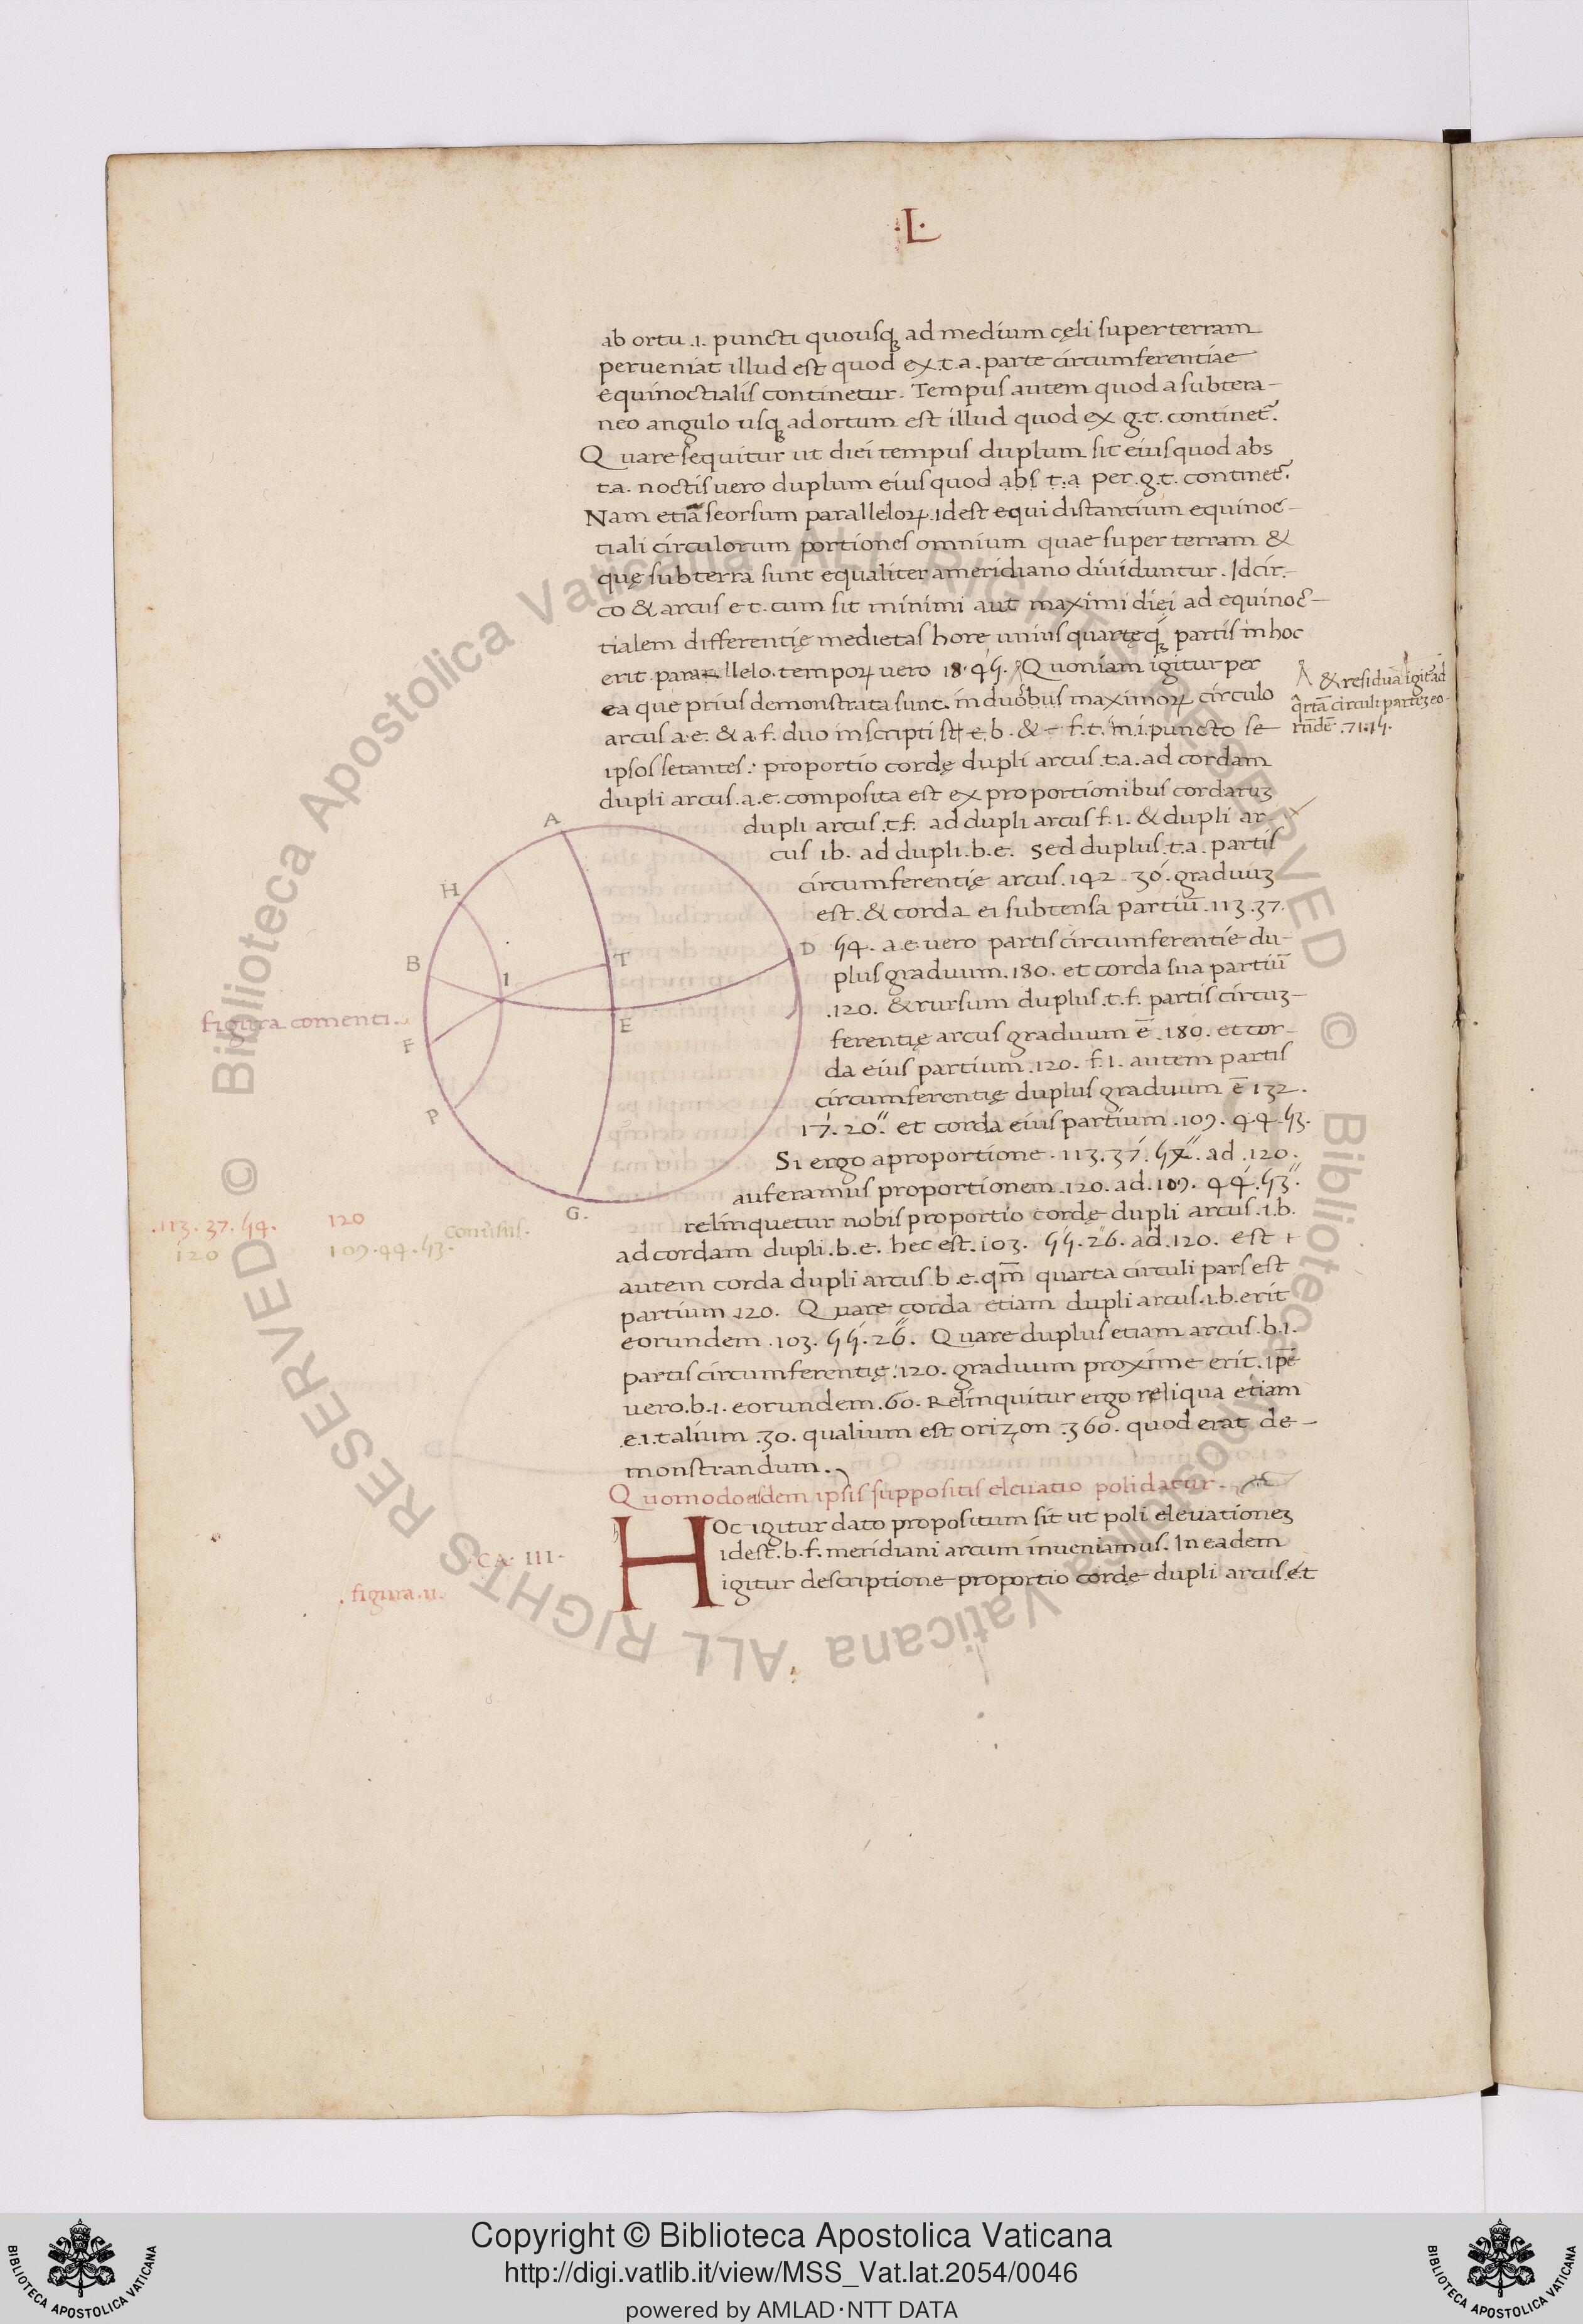 ·L·
ab ortu .i. puncti quousqꝫ ad medium cęli super terram
perueniat illud est quod ex .t.a. parte circumferentiae
equinoctialis continetur. Tempus autem quod a subtera-
neo angulo usqꝫ ad ortum est illud quod ex g.t. continet̃.
Quare sequitur ut diei tempus duplum sit eius quod abs
t.a. noctis uero duplum eius quod abs t.a per .g.t. continet̃.
Nam etiā seorsum paralleloꝝ .idest equi distantium equinoc-
tiali circulorum portiones omnium quae super terram &
quę sub terra sunt equaliter a meridiano diuiduntur. Idcir-
co & arcus e t. cum sit minimi aut maximi diei ad equinoc-
tialem differentię medietas horę unius quartęqꝫ partis in hoc
erit parallelo. tempoꝝ uero 18. 45. Quoniam igitur per
& residua igit̃ ad
qrtā circuli partēz eo-
rūdē .71.15.
ea que prius demonstrata sunt. in duobus maximoꝝ circulo
arcus a.e. & a.f. duo inscripti st̄ e.b. & f.t. in .i. puncto se
ipsos secantes: proportio cordę dupli arcus .t.a. ad cordam
dupli arcus .a.e. composita est ex proportionibus cordaruꝫ
dupli arcus .t.f. ad dupli arcus f.i. & dupli ar-
cus ib. ad dupli .b.e. Sed duplus .t.a. partis
circumferentię arcus .142 30. graduuꝫ
est. & corda ei subtensa partiū .113.37.
54. a.e. uero partis circumferentie du-
plus graduum .180. et corda sua partiū
.120. & rursum duplus .t.f. partis circuꝫ-
ferentię arcus graduum ē .180. et cor-
da eius partium .120. f.i. autem partis
circumferentię duplus graduum ē 132.
17. 20. et corda eius partium .109. 44.53.
Si ergo a proportione .113. 37. 54. ad .120.
auferamus proportionem .120. ad .109. 44. 53.
relinquetur nobis proportio cordę dupli arcus .i.b.
ad cordam dupli .b.e. hec est .103. 55. 26. ad .120. est
autem corda dupli arcus .b.e. qm̄ quarta circuli pars est
partium 120. Quare corda etiam dupli arcus .i.b. erit
eorundem .103. 55. 26. Quare duplus etiam arcus .b.i.
partis circumferentię .120. graduum proxime erit. ipē
uero .b.i. eorundem .60. Relinquitur ergo reliqua etiam
.e.i. talium .30. qualium est orizon .360. quod erat de-
monstrandum.
A
H
B
I
T
D
E
F
P
G.
figura comenti.
.113. 37. 54. 120
120 109. 44. 53.
Quomodo eisdem ipsis suppositis eleuatio poli datur.
CA· III·
Hoc igitur dato propositum sit ut poli eleuationeꝫ
idest .b.f. meridiani arcum inueniamus. In eadem
igitur descriptione proportio cordę dupli arcus et
figura .ii.
© Biblioteca Apostolica Vaticana ALL RIGHTS RESERVED © Biblioteca Apostolica Vaticana ALL RIGHTS RESERVED
BIBLIOTECA APOSTOLICA VATICANA
Copyright © Biblioteca Apostolica Vaticana
http://digi.vatlib.it/view/MSS_Vat.lat.2054/0046
powered by AMLAD·NTT DATA
BIBLIOTECA APOSTOLICA VATICANA